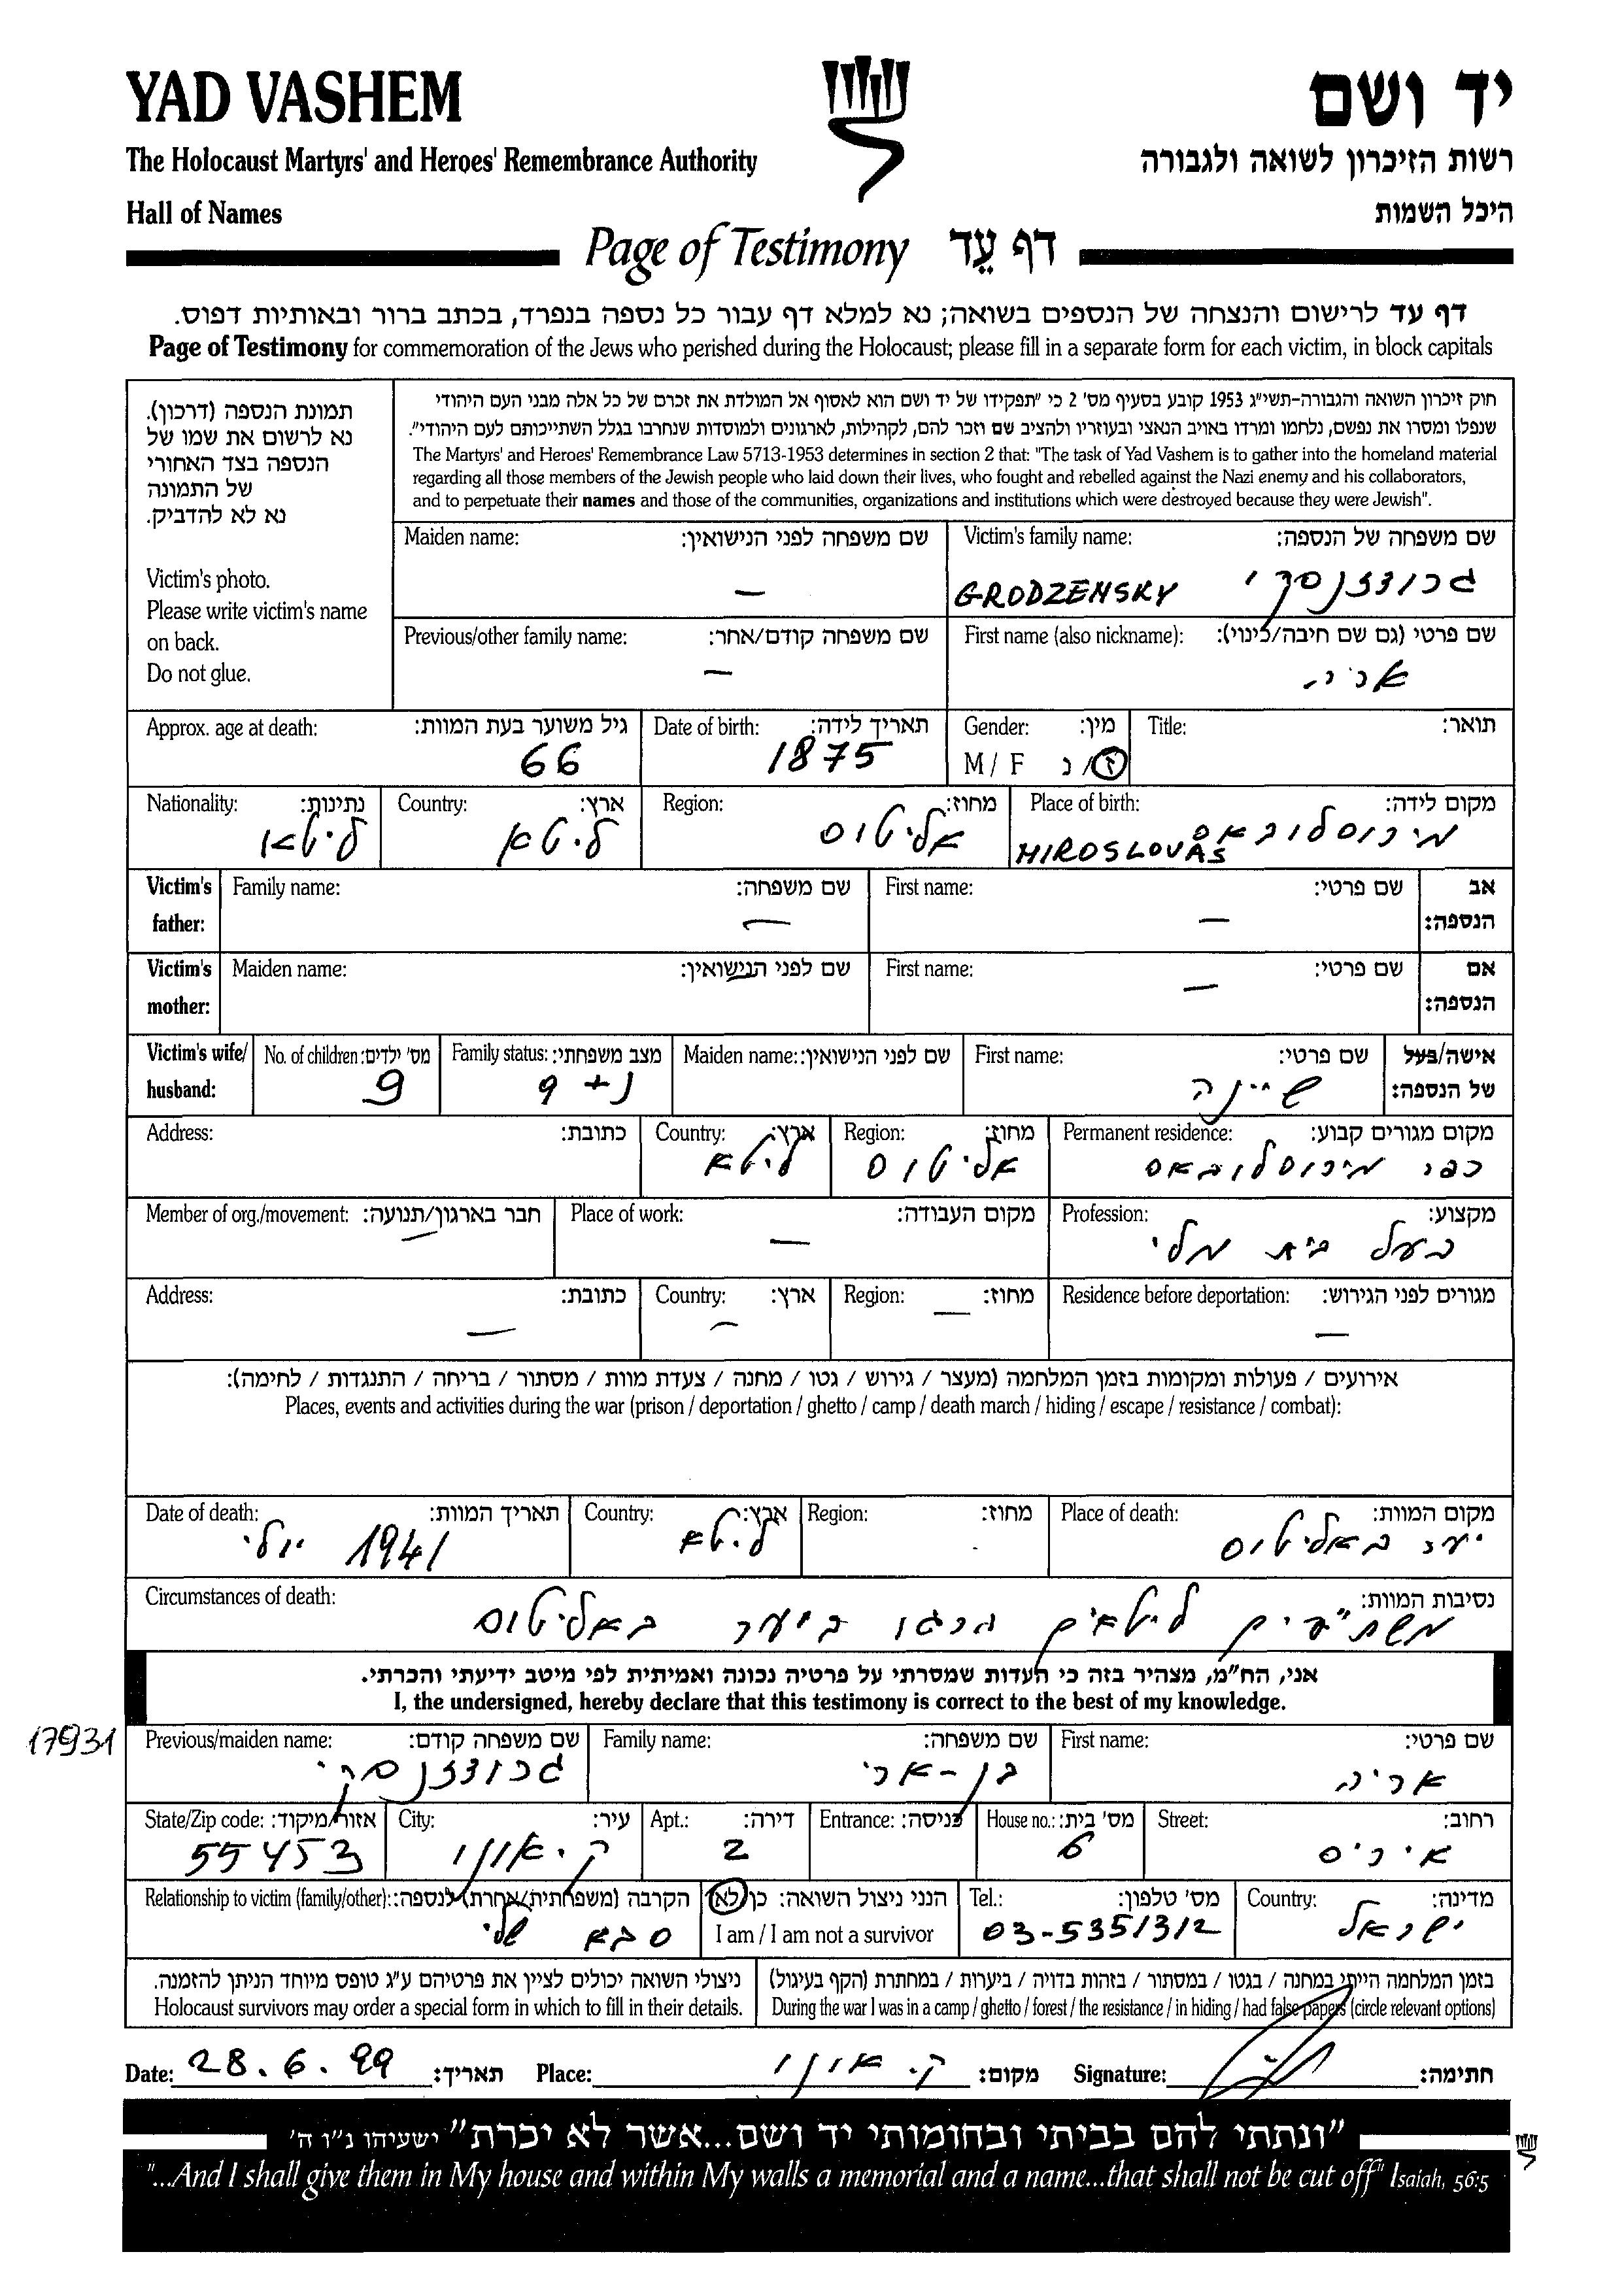 YAD VASHEM
יד ושם
The Holocaust Martyrs' and Heroes' Remembrance Authority
רשות הזיכרון לשואה ולגבורה
Hall of Names
היכל השמות
Page of Testimony דף עֵד
דף עד לרישום והנצחה של הנספים בשואה; נא למלא דף עבור כל נספה בנפרד, בכתב ברור ובאותיות דפוס.
Page of Testimony for commemoration of the Jews who perished during the Holocaust; please fill in a separate form for each victim, in block capitals
תמונת הנספה (דרכון).
נא לרשום את שמו של
הנספה בצד האחורי
של התמונה
נא לא להדביק.
Victim's photo.
Please write victim's name
on back.
Do not glue.
חוק זיכרון השואה והגבורה-תשי"ג 1953 קובע בסעיף מס' 2 כי "תפקידו של יד ושם הוא לאסוף אל המולדת את זכרם של כל אלה מבני העם היהודי
שנפלו ומסרו את נפשם, נלחמו ומרדו באויב הנאצי ובעוזריו ולהציב שם וזכר להם, לקהילות, לארגונים ולמוסדות שנחרבו בגלל השתייכותם לעם היהודי".
The Martyrs' and Heroes' Remembrance Law 5713-1953 determines in section 2 that: "The task of Yad Vashem is to gather into the homeland material
regarding all those members of the Jewish people who laid down their lives, who fought and rebelled against the Nazi enemy and his collaborators,
and to perpetuate their names and those of the communities, organizations and institutions which were destroyed because they were Jewish".
Victim's family name: שם משפחה של הנספה:
GRODZENSKY גרודזנסקי
Maiden name: שם משפחה לפני הנישואין:
—
First name (also nickname): שם פרטי (גם שם חיבה/כינוי):
אריה
Previous/other family name: שם משפחה קודם/אחר:
—
Title: תואר:
Gender: מין:
M / F ז/נ
Date of birth: תאריך לידה:
1875
Approx. age at death: גיל משוער בעת המוות:
66
Place of birth: מקום לידה:
מירוסלובאס
MIROSLOVAS
Region: מחוז:
אליטוס
Country: ארץ:
ליטא
Nationality: נתינות:
ליטאי
Victim's father: אב הנספה:
First name: שם פרטי:
—
Family name: שם משפחה:
—
Victim's mother: אם הנספה:
First name: שם פרטי:
—
Maiden name: שם לפני הנישואין:
Victim's wife/ husband: אישה/בעל של הנספה:
First name: שם פרטי:
שיינה
Maiden name: שם לפני הנישואין:
Family status: מצב משפחתי:
נ + 9
No. of children: מס' ילדים:
9
Permanent residence: מקום מגורים קבוע:
כפר מירוסלובאס
Region: מחוז:
אליטוס
Country: ארץ:
ליטא
Address: כתובת:
Profession: מקצוע:
בעל בית
Place of work: מקום העבודה:
—
Member of org./movement: חבר בארגון/תנועה:
—
Residence before deportation: מגורים לפני הגירוש:
—
Region: מחוז:
—
Country: ארץ:
—
Address: כתובת:
—
אירועים / פעולות ומקומות בזמן המלחמה (מעצר / גירוש / גטו / מחנה / צעדת מוות / מסתור / בריחה / התנגדות / לחימה):
Places, events and activities during the war (prison / deportation / ghetto / camp / death march / hiding / escape / resistance / combat):
Place of death: מקום המוות:
יער באליטוס
Region: מחוז:
Country: ארץ:
ליטא
Date of death: תאריך המוות:
יולי 1941
Circumstances of death: נסיבות המוות:
משת"פים ליטאים הרגו ביער באליטוס
אני, הח"מ, מצהיר בזה כי העדות שמסרתי על פרטיה נכונה ואמיתית לפי מיטב ידיעתי והכרתי.
I, the undersigned, hereby declare that this testimony is correct to the best of my knowledge.
17931
First name: שם פרטי:
אריה
Family name: שם משפחה:
בן-ארי
Previous/maiden name: שם משפחה קודם:
גרודזנסקי
Street: רחוב:
איריס
House no.: מס' בית:
6
Entrance: כניסה:
Apt.: דירה:
2
City: עיר:
ק. אונו
State/Zip code: אזור/מיקוד:
55453
Country: מדינה:
ישראל
Tel.: מס' טלפון:
03-5351312
הנני ניצול השואה: כן / לא
I am / I am not a survivor
Relationship to victim (family/other): הקרבה (משפחתית/אחרת) לנספה:
סבא שלי
בזמן המלחמה הייתי במחנה / בגטו / במסתור / בזהות בדויה / ביערות / במחתרת (הקף בעיגול)
During the war I was in a camp / ghetto / forest / the resistance / in hiding / had false papers (circle relevant options)
ניצולי השואה יכולים לציין את פרטיהם ע"ג טופס מיוחד הניתן להזמנה.
Holocaust survivors may order a special form in which to fill in their details.
Date: 28.6.99 תאריך: Place: ק. אונו מקום: Signature: חתימה:
"ונתתי להם בביתי ובחומותי יד ושם...אשר לא יכרת" ישעיהו נ"ו ה'
"...And I shall give them in My house and within My walls a memorial and a name...that shall not be cut off" Isaiah, 56:5